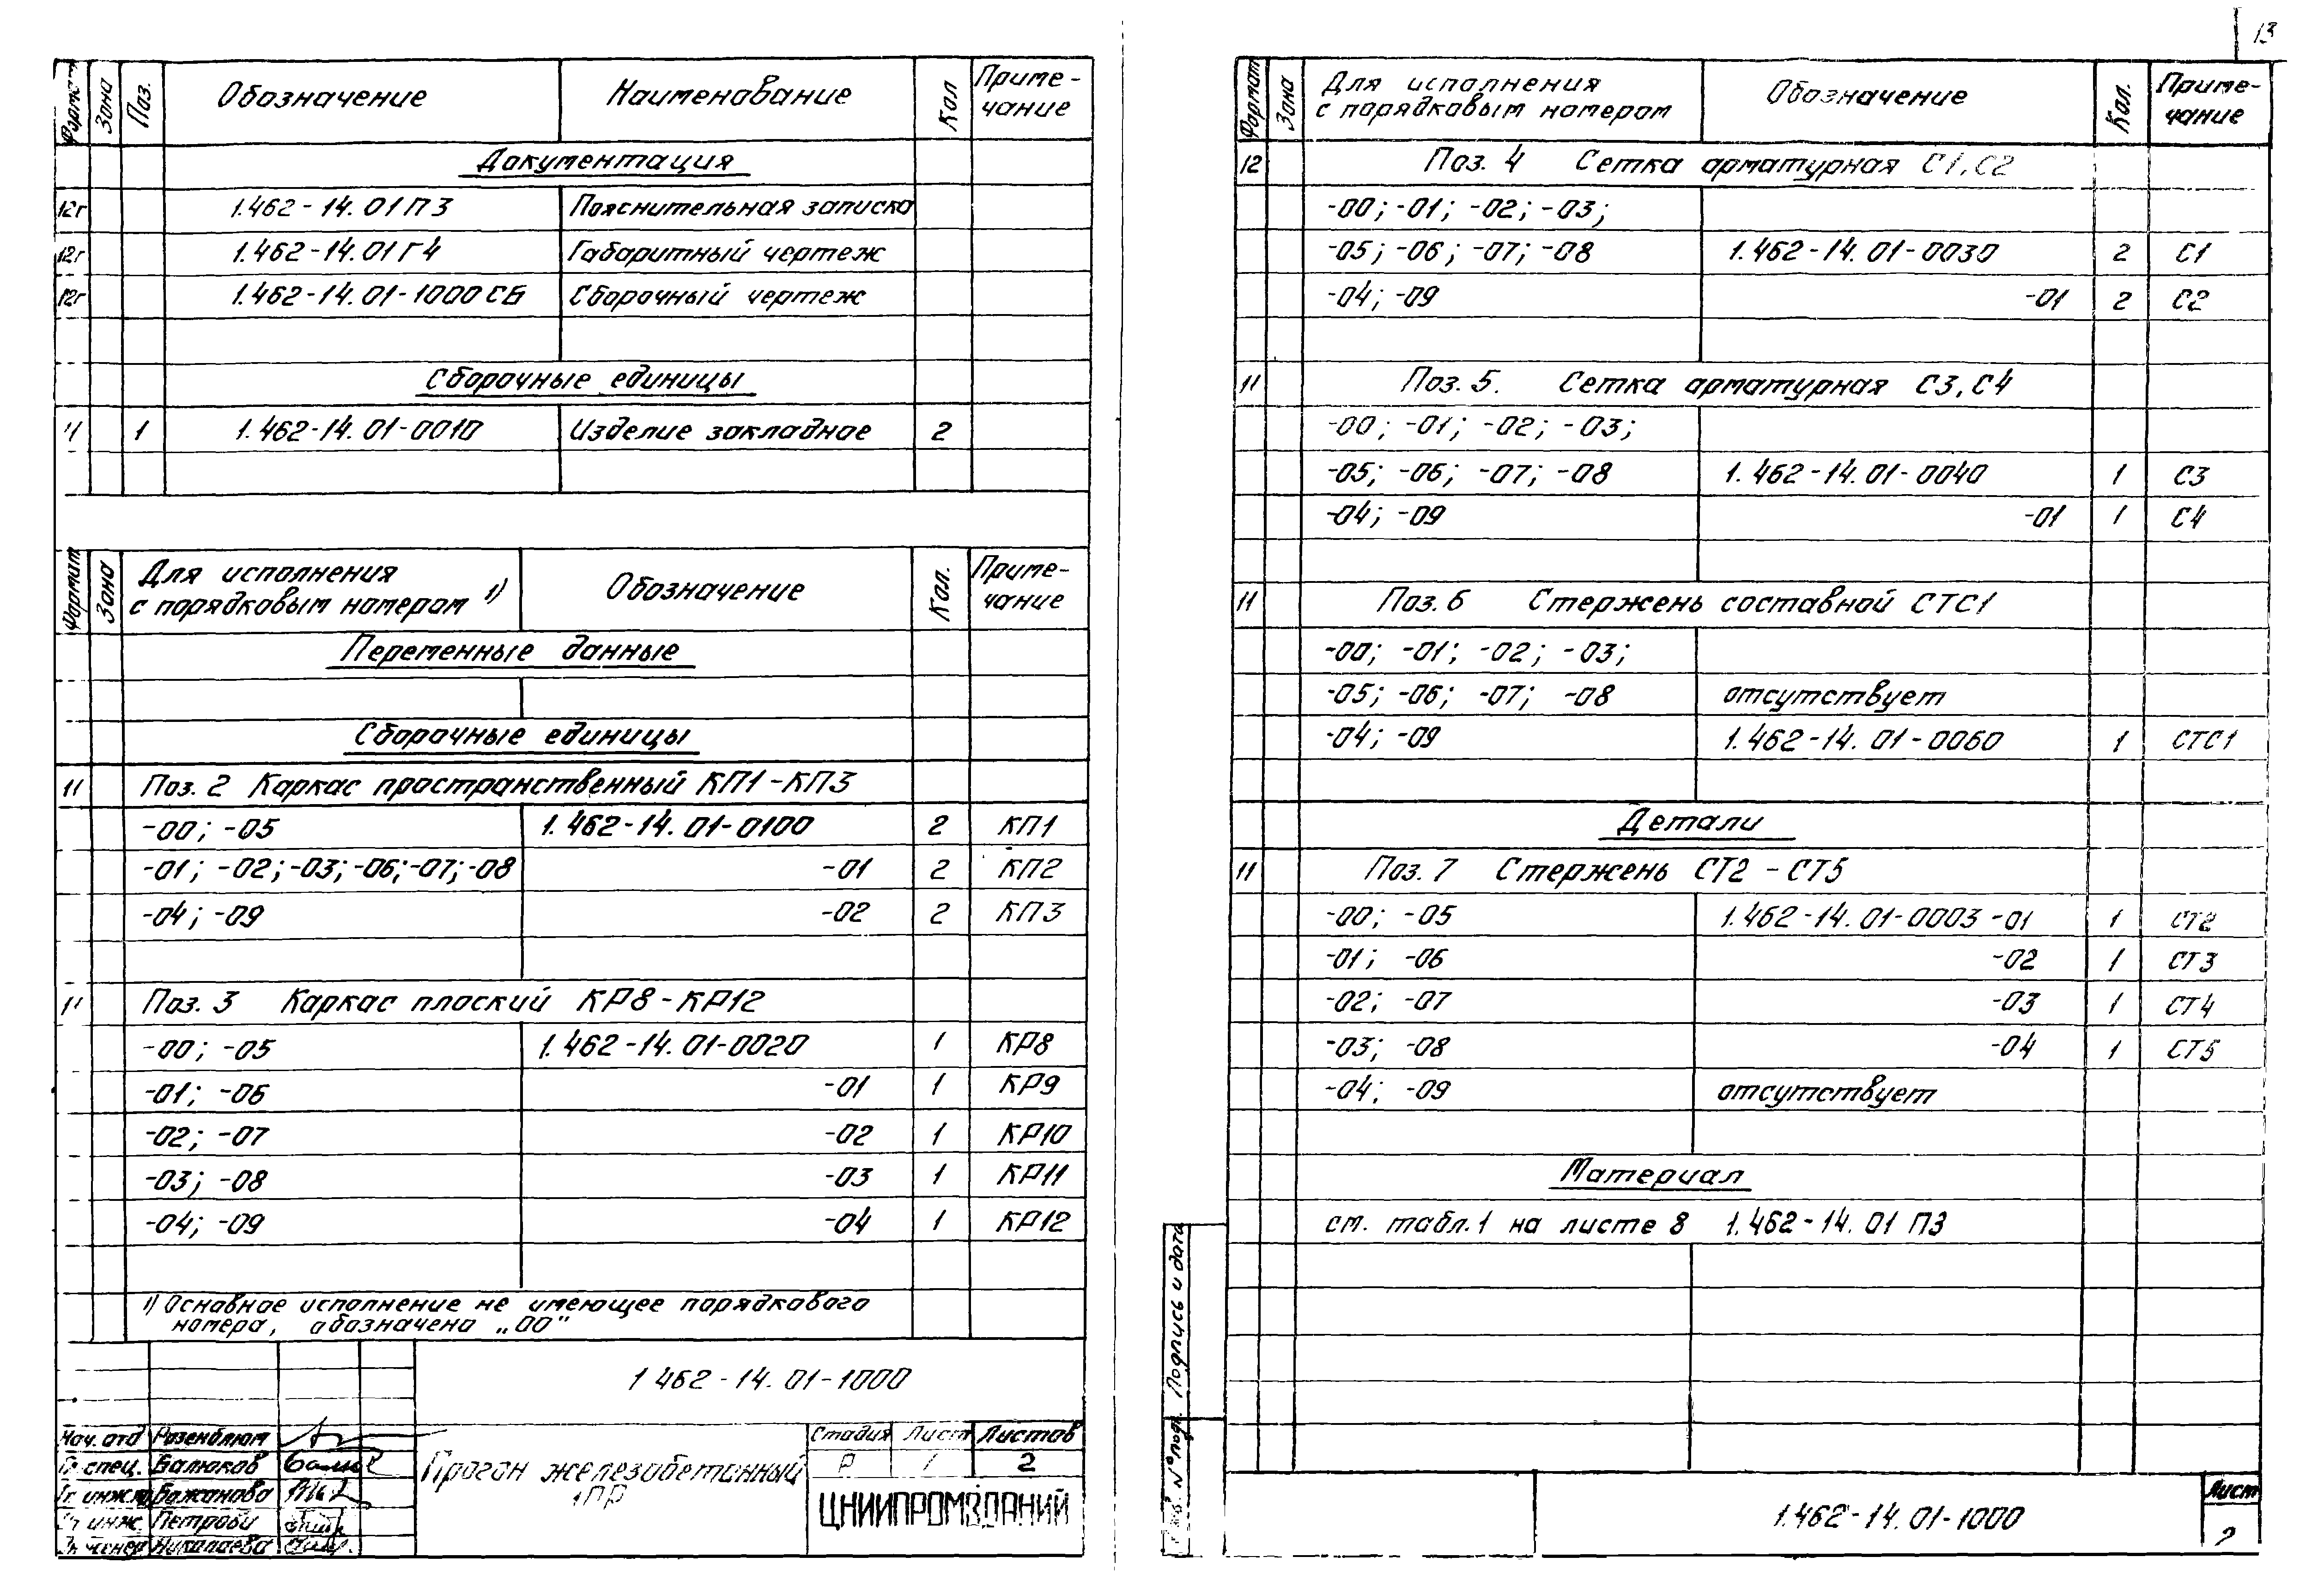 13
Формат Зона Поз. Обозначение Наименование Кол Приме-
чание
Документация
12г 1.462-14.01 ПЗ Пояснительная записка
12г 1.462-14.01 Г4 Габаритный чертеж
12г 1.462-14.01-1000 СБ Сборочный чертеж
Сборочные единицы
11 1 1.462-14.01-0010 Изделие закладное 2
Формат Зона Для исполнения
с порядковым номером 1) Обозначение Кол. Приме-
чание
Переменные данные
Сборочные единицы
11 Поз. 2 Каркас пространственный КП1-КП3
-00; -05 1.462-14.01-0100 2 КП1
-01; -02; -03; -06; -07; -08 -01 2 КП2
-04; -09 -02 2 КП3
11 Поз. 3 Каркас плоский КР8-КР12
-00; -05 1.462-14.01-0020 1 КР8
-01; -06 -01 1 КР9
-02; -07 -02 1 КР10
-03; -08 -03 1 КР11
-04; -09 -04 1 КР12
1) Основное исполнение не имеющее порядкового
номера, обозначено „00"
1.462-14.01-1000
Нач. отд Розенблюм
Гл спец. Балюков
Гл. инж. пр Бажанова
Ст инж. Петрова
Инженер Николаева
Прогон железобетонный
1ПР
Стадия Лист Листов
Р 1 2
ЦНИИПРОМЗДАНИЙ
Формат Зона Для исполнения
с порядковым номером Обозначение Кол. Приме-
чание
12 Поз. 4 Сетка арматурная С1, С2
-00; -01; -02; -03;
-05; -06; -07; -08 1.462-14.01-0030 2 С1
-04; -09 -01 2 С2
11 Поз. 5. Сетка арматурная С3, С4
-00; -01; -02; -03;
-05; -06; -07; -08 1.462-14.01-0040 1 С3
-04; -09 -01 1 С4
11 Поз. 6 Стержень составной СТС1
-00; -01; -02; -03;
-05; -06; -07; -08 отсутствует
-04; -09 1.462-14.01-0060 1 СТС1
Детали
11 Поз. 7 Стержень СТ2-СТ5
-00; -05 1.462-14.01-0003-01 1 СТ2
-01; -06 -02 1 СТ3
-02; -07 -03 1 СТ4
-03; -08 -04 1 СТ5
-04; -09 отсутствует
Материал
см. табл. 1 на листе 8 1.462-14.01 ПЗ
Подпись и дата
Инв. № подл.
1.462-14.01-1000
Лист
2